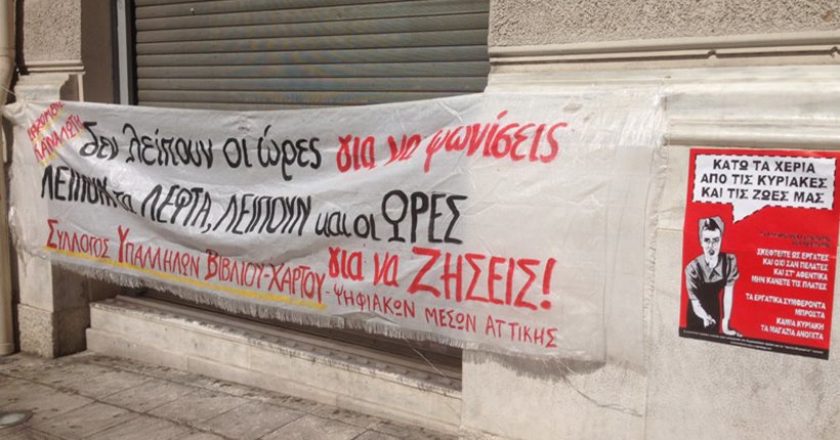 ΕΡΓΑΖΟΜΕΝΕ
ΚΑΤΑΝΑΛΩΤΗ
δεν λείπουν οι ώρες για να ψωνίσεις
ΛΕΙΠΟΥΝ τα ΛΕΦΤΑ, ΛΕΙΠΟΥΝ και οι ΩΡΕΣ
για να ΖΗΣΕΙΣ!
ΣΥΛΛΟΓΟΣ ΥΠΑΛΛΗΛΩΝ ΒΙΒΛΙΟΥ-ΧΑΡΤΟΥ - ΨΗΦΙΑΚΩΝ ΜΕΣΩΝ ΑΤΤΙΚΗΣ
ΚΑΤΩ ΤΑ ΧΕΡΙΑ
ΑΠΟ ΤΙΣ ΚΥΡΙΑΚΕΣ
ΚΑΙ ΤΙΣ ΖΩΕΣ ΜΑΣ
ΣΚΕΦΤΕΙΤΕ ΩΣ ΕΡΓΑΤΕΣ
ΚΑΙ ΟΧΙ ΣΑΝ ΠΕΛΑΤΕΣ
ΚΑΙ ΣΤ' ΑΦΕΝΤΙΚΑ
ΜΗΝ ΚΑΝΕΤΕ ΤΙΣ ΠΛΑΤΕΣ
ΤΑ ΕΡΓΑΤΙΚΑ ΣΥΜΦΕΡΟΝΤΑ
ΜΠΡΟΣΤΑ
ΚΑΜΙΑ ΚΥΡΙΑΚΗ
ΤΑ ΜΑΓΑΖΙΑ ΑΝΟΙΧΤΑ